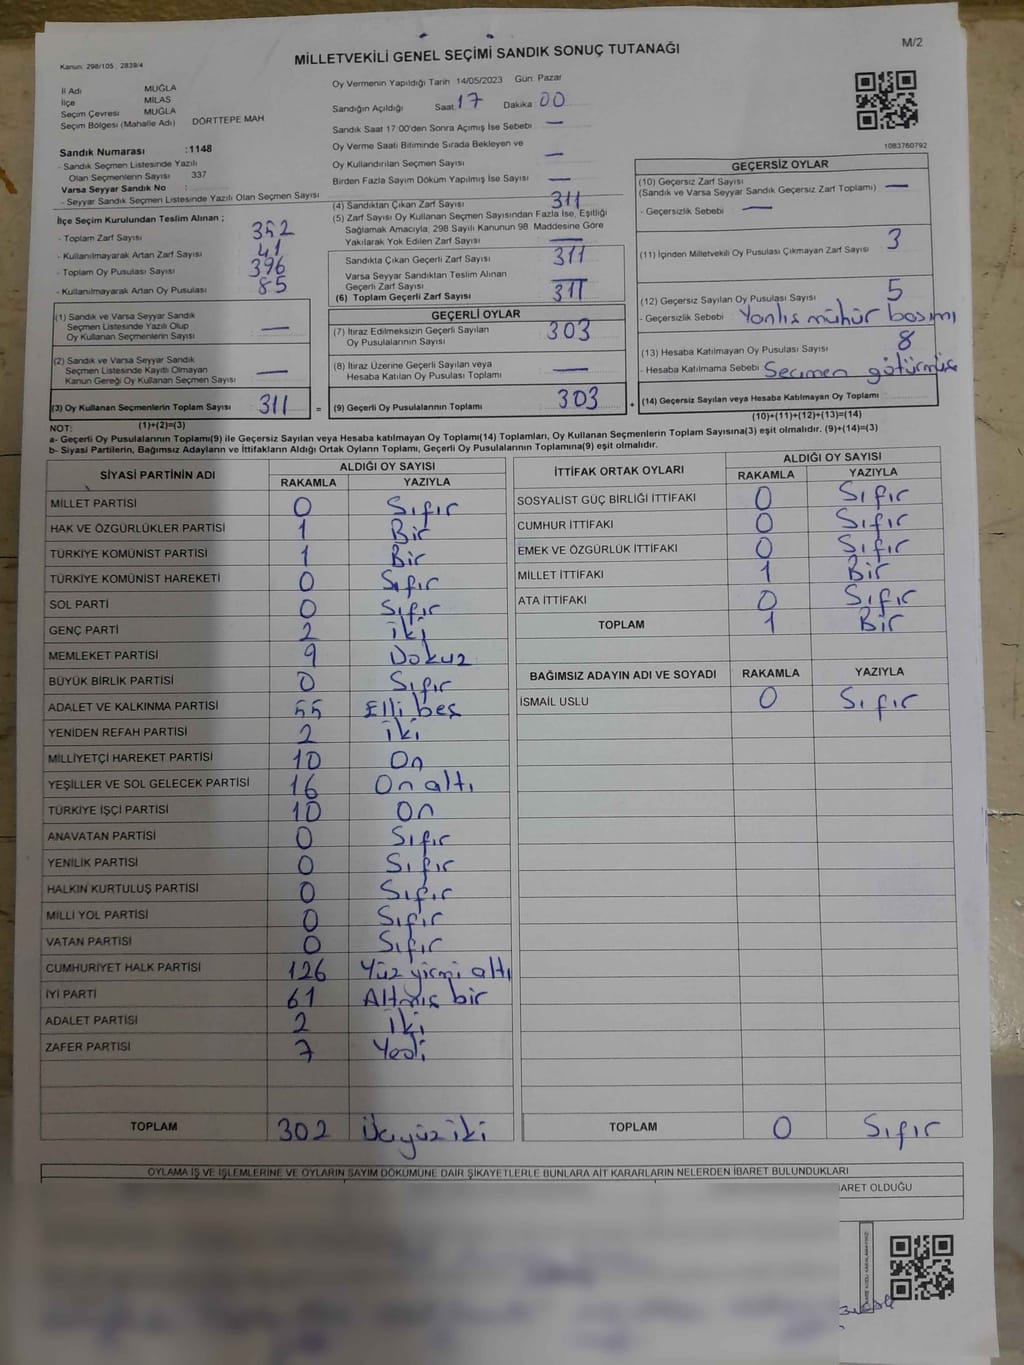 M/2
MİLLETVEKİLİ GENEL SEÇİMİ SANDIK SONUÇ TUTANAĞI
Kanun: 298/105 2839/4
İl Adı MUĞLA
İlçe MİLAS
Seçim Çevresi MUĞLA
Seçim Bölgesi (Mahalle Adı) DÖRTTEPE MAH.
Sandık Numarası :1148
- Sandık Seçmen Listesinde Yazılı
Olan Seçmenlerin Sayısı 337
Varsa Seyyar Sandık No :
- Seyyar Sandık Seçmen Listesinde Yazılı Olan Seçmen Sayısı
Oy Vermenin Yapıldığı Tarih 14/05/2023 Gün: Pazar
Sandığın Açıldığı Saat 17 Dakika 00
Sandık Saat 17:00'den Sonra Açımış İse Sebebi —
Oy Verme Saati Bitiminde Sırada Bekleyen ve
Oy Kullandırılan Seçmen Sayısı —
Birden Fazla Sayım Döküm Yapılmış İse Sayısı —
1083760792
İlçe Seçim Kurulundan Teslim Alınan ;
- Toplam Zarf Sayısı 352
- Kullanılmayarak Artan Zarf Sayısı 41
- Toplam Oy Pusulası Sayısı 396
- Kullanılmayarak Artan Oy Pusulası 85
(1) Sandık ve Varsa Seyyar Sandık
Seçmen Listesinde Yazılı Olup
Oy Kullanan Seçmenlerin Sayısı —
(2) Sandık ve Varsa Seyyar Sandık
Seçmen Listesinde Kayıtlı Olmayan
Kanun Gereği Oy Kullanan Seçmen Sayısı —
(3) Oy Kullanan Seçmenlerin Toplam Sayısı 311 =
(1)+(2)=(3)
(4) Sandıktan Çıkan Zarf Sayısı 311
(5) Zarf Sayısı Oy Kullanan Seçmen Sayısından Fazla İse, Eşitliği
Sağlamak Amacıyla, 298 Sayılı Kanunun 98. Maddesine Göre
Yakılarak Yok Edilen Zarf Sayısı —
Sandıkta Çıkan Geçerli Zarf Sayısı 311
Varsa Seyyar Sandıktan Teslim Alınan
Geçerli Zarf Sayısı —
(6) Toplam Geçerli Zarf Sayısı 311
GEÇERLİ OYLAR
(7) İtiraz Edilmeksizin Geçerli Sayılan
Oy Pusulalarının Sayısı 303
(8) İtiraz Üzerine Geçerli Sayılan veya
Hesaba Katılan Oy Pusulası Toplamı —
(9) Geçerli Oy Pusulalarının Toplamı 303 +
GEÇERSİZ OYLAR
(10) Geçersiz Zarf Sayısı
(Sandık ve Varsa Seyyar Sandık Geçersiz Zarf Toplamı) —
- Geçersizlik Sebebi —
(11) İçinden Milletvekili Oy Pusulası Çıkmayan Zarf Sayısı 3
(12) Geçersiz Sayılan Oy Pusulası Sayısı 5
- Geçersizlik Sebebi Yanlış mühür basımı
(13) Hesaba Katılmayan Oy Pusulası Sayısı 8
- Hesaba Katılmama Sebebi Seçmen götürmüş
(14) Geçersiz Sayılan veya Hesaba Katılmayan Oy Toplamı
(10)+(11)+(12)+(13)=(14)
NOT:
a- Geçerli Oy Pusulalarının Toplamı(9) ile Geçersiz Sayılan veya Hesaba katılmayan Oy Toplamı(14) Toplamları, Oy Kullanan Seçmenlerin Toplam Sayısına(3) eşit olmalıdır. (9)+(14)=(3)
b- Siyasi Partilerin, Bağımsız Adayların ve İttifakların Aldığı Ortak Oyların Toplamı, Geçerli Oy Pusulalarının Toplamına(9) eşit olmalıdır.
SİYASİ PARTİNİN ADI ALDIĞI OY SAYISI
RAKAMLA YAZIYLA
MİLLET PARTİSİ 0 Sıfır
HAK VE ÖZGÜRLÜKLER PARTİSİ 1 Bir
TÜRKİYE KOMÜNİST PARTİSİ 1 Bir
TÜRKİYE KOMÜNİST HAREKETİ 0 Sıfır
SOL PARTİ 0 Sıfır
GENÇ PARTİ 2 iki
MEMLEKET PARTİSİ 9 Dokuz
BÜYÜK BİRLİK PARTİSİ 0 Sıfır
ADALET VE KALKINMA PARTİSİ 55 Elli beş
YENİDEN REFAH PARTİSİ 2 iki
MİLLİYETÇİ HAREKET PARTİSİ 10 On
YEŞİLLER VE SOL GELECEK PARTİSİ 16 On altı
TÜRKİYE İŞÇİ PARTİSİ 10 On
ANAVATAN PARTİSİ 0 Sıfır
YENİLİK PARTİSİ 0 Sıfır
HALKIN KURTULUŞ PARTİSİ 0 Sıfır
MİLLİ YOL PARTİSİ 0 Sıfır
VATAN PARTİSİ 0 Sıfır
CUMHURİYET HALK PARTİSİ 126 Yüz yirmi altı
İYİ PARTİ 61 Altmış bir
ADALET PARTİSİ 2 İki
ZAFER PARTİSİ 7 Yedi
TOPLAM 302 Üçyüz iki
İTTİFAK ORTAK OYLARI ALDIĞI OY SAYISI
RAKAMLA YAZIYLA
SOSYALİST GÜÇ BİRLİĞİ İTTİFAKI 0 Sıfır
CUMHUR İTTİFAKI 0 Sıfır
EMEK VE ÖZGÜRLÜK İTTİFAKI 0 Sıfır
MİLLET İTTİFAKI 1 Bir
ATA İTTİFAKI 0 Sıfır
TOPLAM 1 Bir
BAĞIMSIZ ADAYIN ADI VE SOYADI RAKAMLA YAZIYLA
İSMAİL USLU 0 Sıfır
TOPLAM 0 Sıfır
OYLAMA İŞ VE İŞLEMLERİNE VE OYLARIN SAYIM DÖKÜMÜNE DAİR ŞİKAYETLERLE BUNLARA AİT KARARLARIN NELERDEN İBARET BULUNDUKLARI
BARET OLDUĞU